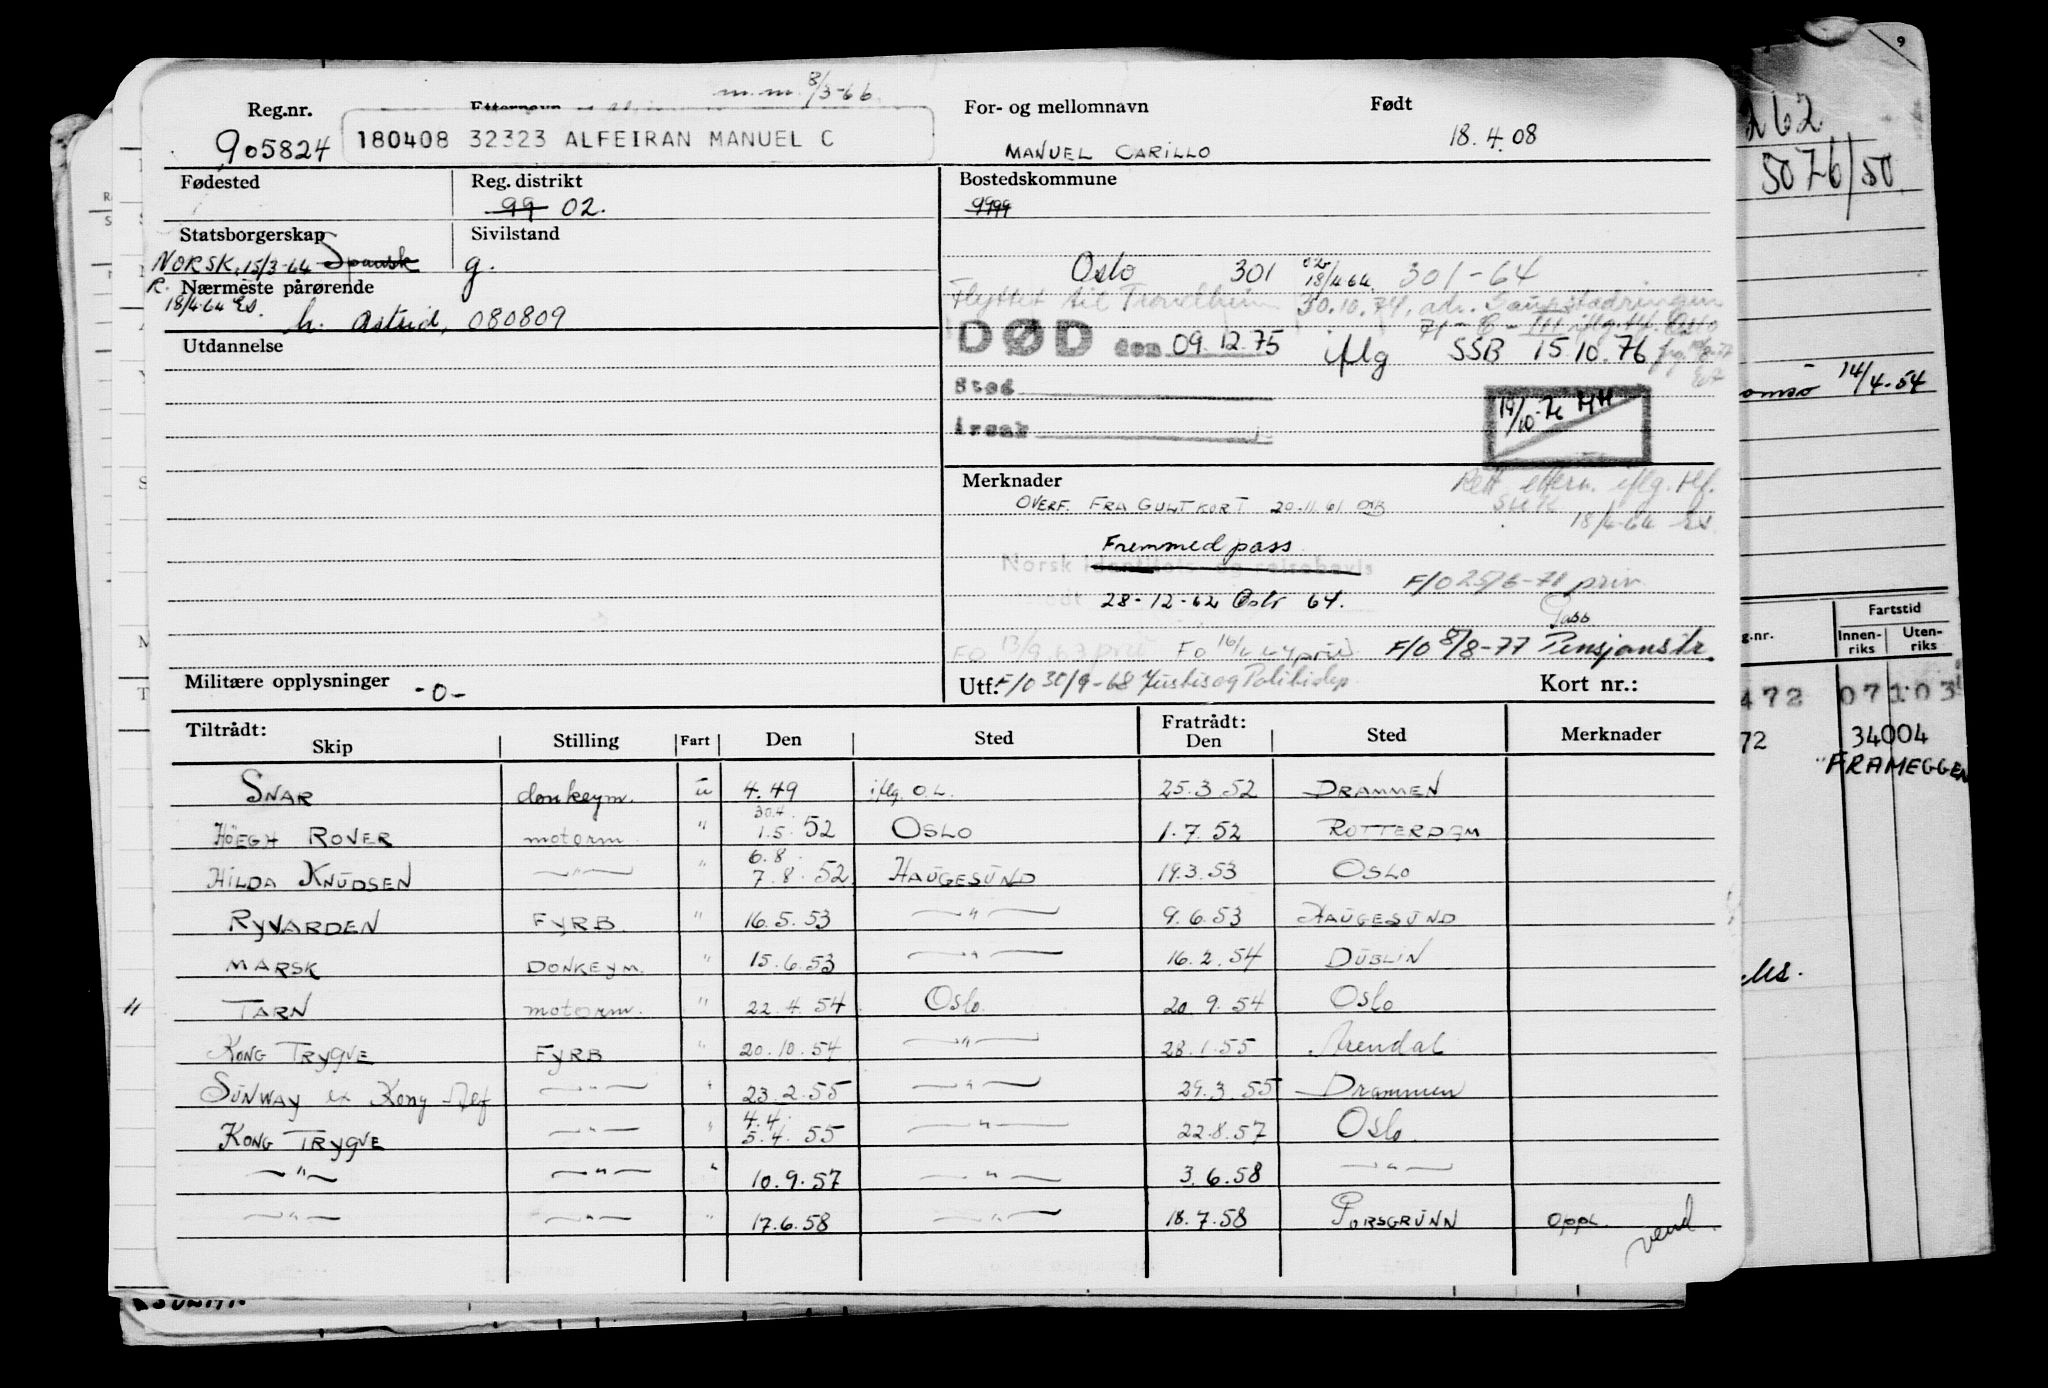 m.m. 8/3-66
Reg.nr. Etternavn For- og mellomnavn Født
905824 180408 32323 ALFEIRAN MANUEL C MANUEL CARILLO 18.4.08
Fødested Reg. distrikt Bostedskommune
99 02. 9999
Statsborgerskap Sivilstand
NORSK 15/3-64 Spansk g. Oslo 301 18/4 64 301-64
R. Nærmeste pårørende Flyttet til Trondheim 30.10.74, adr. Saupstadringen
18/4-64 h. Astrid, 080809 iflg. tlf. Oslo
Utdannelse DØD den 09.12.75 iflg SSB 15.10.76
Sted
19/10-76 HH
Årsak
Merknader Rett ettern. iflg. tlf.
OVERF. FRA GULT KORT 20.11.61 18/4-64
Fremmedpass
Norsk identitets- og reisebevis F/O 25/6-71 priv.
28-12-62 Oslo 64. Pass
FO 13/9.67 priv FO F/O 8/8-77 Pensjonstr.
Militære opplysninger -0- Utf: F/O 30/9-68 Justis og Politidep. Kort nr.:
Tiltrådt: Fratrådt:
Skip Stilling Fart Den Sted Den Sted Merknader
SNAR donkeym. u 4.49 iflg. O.L. 25.3.52 DRAMMEN
30.4
HÖEGH ROVER motorm. " 1.5.52 OSLO 1.7.52 ROTTERDAM
6.8.
HILDA KNUDSEN —"— " 7.8.52 HAUGESUND 19.3.53 OSLO
RYVARDEN FYRB. " 16.5.53 —"— 9.6.53 HAUGESUND
MARSK DONKEYM. " 15.6.53 —"— 16.2.54 DUBLIN
TARN motorm. " 22.4.54 Oslo 20.9.54 Oslo
KONG TRYGVE FYRB " 20.10.54 —"— 28.1.55 Arendal
SUNWAY ex Kong Alf —"— " 23.2.55 —"— 29.3.55 Drammen
4.4.
KONG TRYGVE —"— " 5.4.55 —"— 22.8.57 Oslo
—"— —"— " 10.9.57 —"— 3.6.58 —"—
—"— —"— " 17.6.58 —"— 18.7.58 PORSGRUNN Oppl.
vend
9
262
5076/50
omsø 14/4-54
Fartstid
g.nr. Innen-riks Uten-riks
472 07103
72 34004
FRAMEGGEN